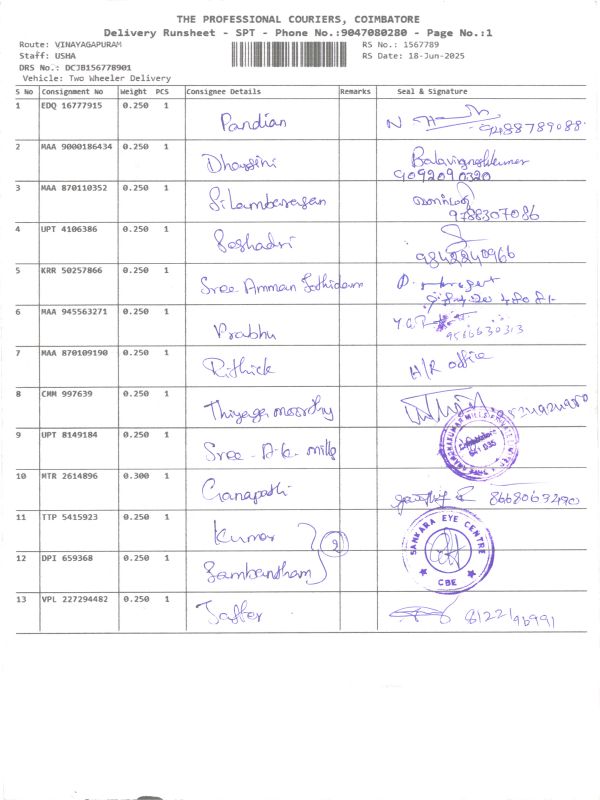 THE PROFESSIONAL COURIERS, COIMBATORE
Delivery Runsheet - SPT - Phone No.:9047080280 - Page No.:1
Route: VINAYAGAPURAM RS No.: 1567789
Staff: USHA RS Date: 18-Jun-2025
DRS No.: DCJB156778901
Vehicle: Two Wheeler Delivery
S No Consignment No Weight PCS Consignee Details Remarks Seal & Signature
1 EDQ 16777915 0.250 1 Pandian 9488789088
2 MAA 9000186434 0.250 1 Dharsini Balavigneshkumar
9092090320
3 MAA 870110352 0.250 1 Silambarasan
9788307086
4 UPT 4106386 0.250 1 Seshadri
9842240966
5 KRR 50257866 0.250 1 Sree Amman
6 MAA 945563271 0.250 1 Prabhu
9566630313
7 MAA 870109190 0.250 1 Rithick H/R office
8 CMM 997639 0.250 1 Thiyagamoorthy
9 UPT 8149184 0.250 1 Sree - A.k. mills
641 035
10 MTR 2614896 0.300 1 Ganapathi
11 TTP 5415923 0.250 1 Kumar 2
SANKARA EYE CENTRE
CBE
12 DPI 659368 0.250 1 Sambantham
13 VPL 227294482 0.250 1 8122196991